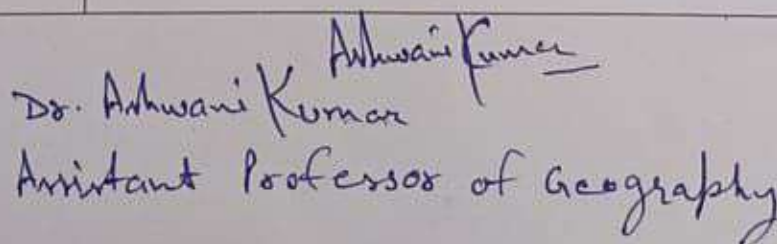 Ashwani Kumar
Dr. Ashwani Kumar
Assistant Professor of Geography